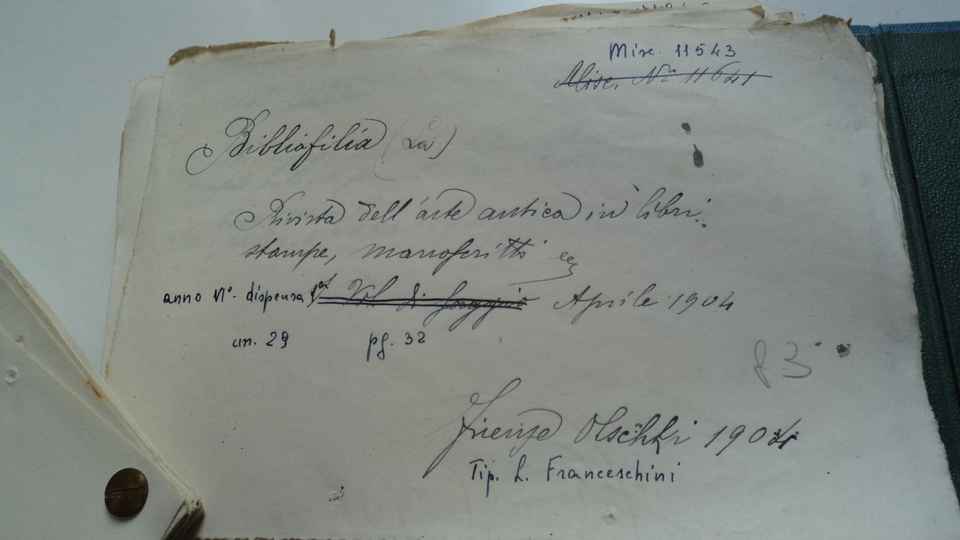 Misc. 11543
Misc. No 11641
Bibliofilia (La)
Rivista dell'arte antica in libri,
stampe, manoscritti ecc
anno No. dispensa 1a Vol. di Saggio Aprile 1904
cm. 29 pg. 32
83
Firenze Olschki 1904
Tip. L. Franceschini